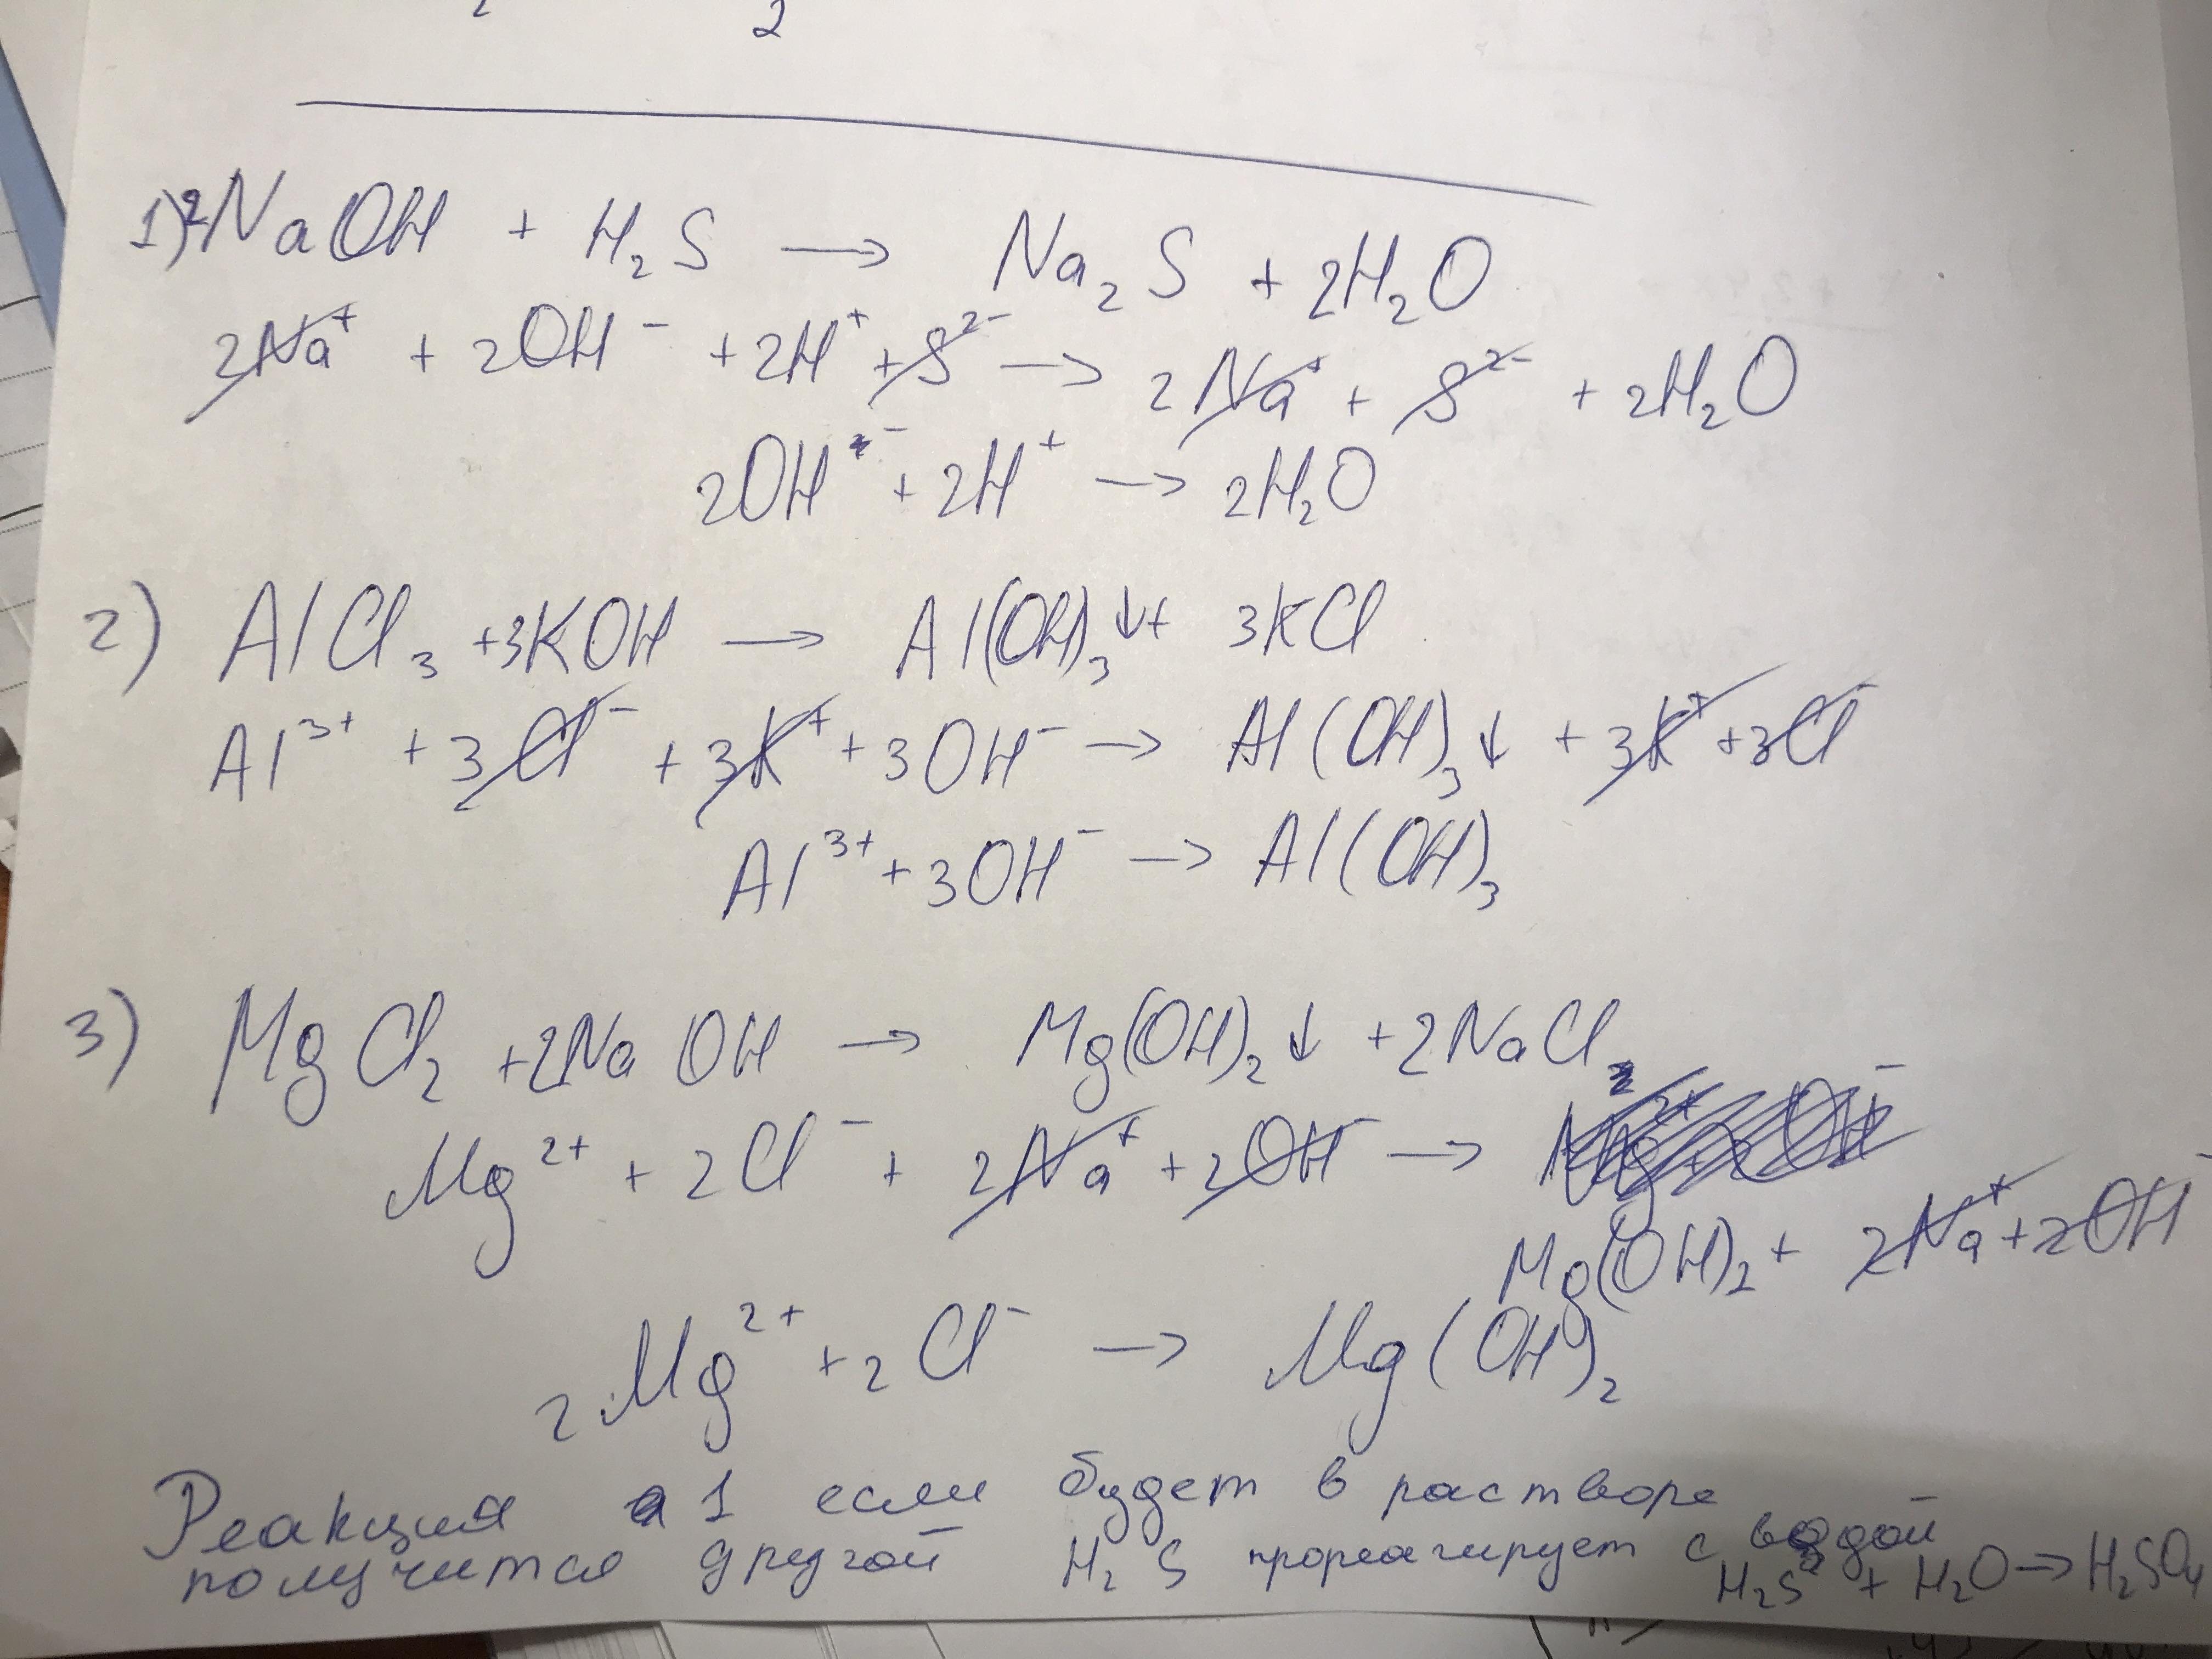 2 2
1) 2NaOH + H₂S → Na₂S + 2H₂O
2Na⁺ + 2OH⁻ + 2H⁺ + S²⁻ → 2Na⁺ + S²⁻ + 2H₂O
2OH⁻ + 2H⁺ → 2H₂O
2) AlCl₃ + 3KOH → Al(OH)₃↓ + 3KCl
Al³⁺ + 3Cl⁻ + 3K⁺ + 3OH⁻ → Al(OH)₃↓ + 3K⁺ + 3Cl⁻
Al³⁺ + 3OH⁻ → Al(OH)₃
3) MgCl₂ + 2NaOH → Mg(OH)₂↓ + 2NaCl
Mg²⁺ + 2Cl⁻ + 2Na⁺ + 2OH⁻ →
Mg(OH)₂ + 2Na⁺ + 2OH⁻
2Mg²⁺ + 2Cl⁻ → Mg(OH)₂
Реакция 1 если будет в растворе
получится другой H₂S прореагирует с водой
H₂S + H₂O → H₂SO₄